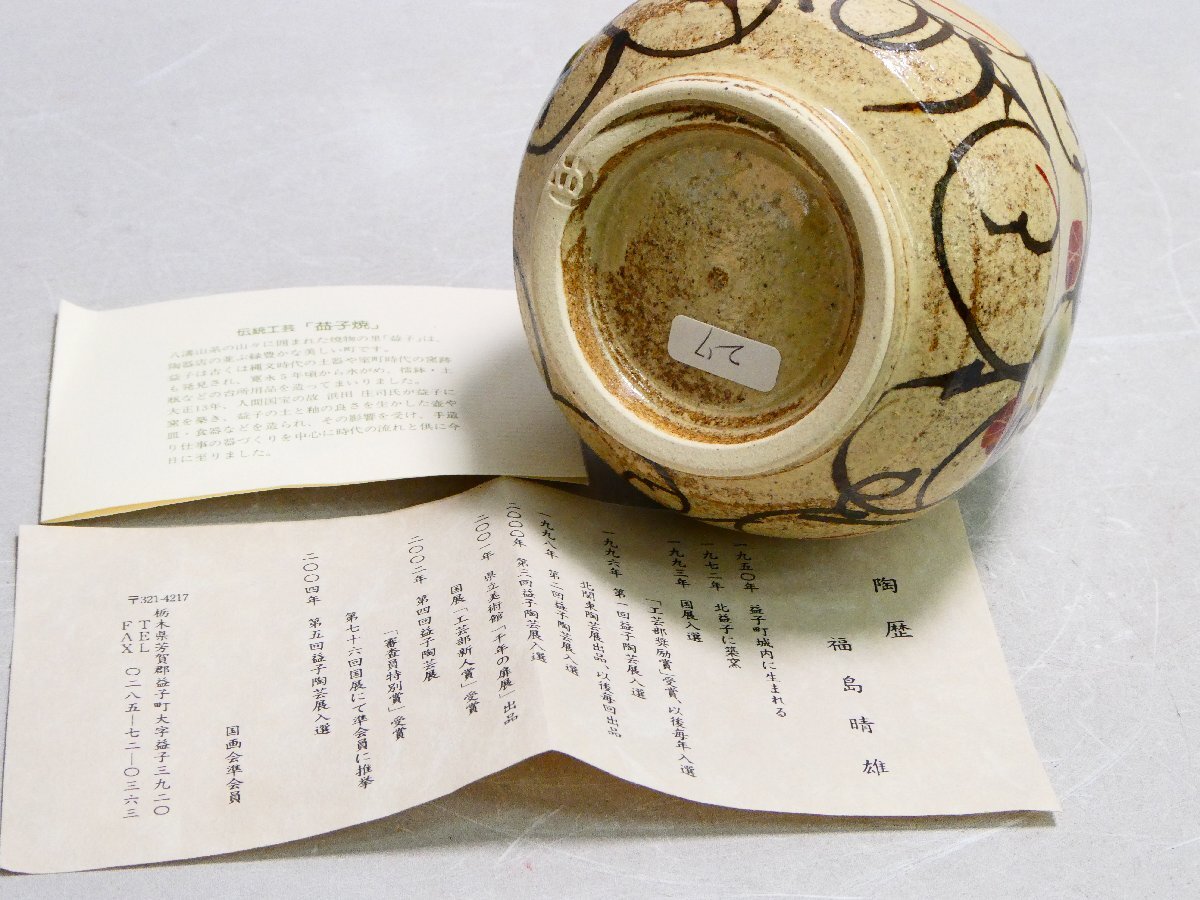 伝統工芸「益子焼」
八溝山系の山々に囲まれた焼物の里「益子」は、
陶器店の並ぶ緑豊かな美しい町です。
益子は古くは縄文時代の土器や室町時代の窯跡
も発見され、寛永5年頃から水がめ、擂鉢・土
瓶などの台所用品を造ってまいりました。
大正13年、人間国宝の故 浜田 庄司氏が益子に
窯を築き、益子の土と釉の良さを生かした壺や
皿・食器などを造られ、その影響を受け、手造
り仕事の器づくりを中心に時代の流れと供に今
日に至りました。
27
陶歴
福島晴雄
一九五〇年 益子町城内に生まれる
一九七二年 北益子に築窯
一九九三年 国展入選
「工芸部奨励賞」受賞、以後毎年入選
一九九六年 第一回益子陶芸展入選
北関東陶芸展出品、以後毎回出品
一九九八年 第二回益子陶芸展入選
二〇〇〇年 第三回益子陶芸展入選
二〇〇一年 県立美術館「千年の扉展」出品
国展「工芸部新人賞」受賞
二〇〇二年 第四回益子陶芸展
「審査員特別賞」受賞
第七十六回国展にて準会員に推挙
二〇〇四年 第五回益子陶芸展入選
国画会準会員
〒321-4217
栃木県芳賀郡益子町大字益子三九二〇
TEL
FAX 〇二八五―七二―〇三六三